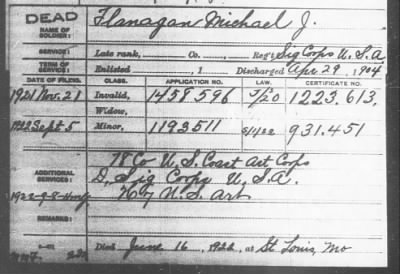 DEAD
NAME OF SOLDIER: Flanagan Michael J.
SERVICE: Late rank, Co., Reg't Sig Corps U.S.A
TERM OF SERVICE: Enlisted , 1 Discharged Apr. 29, 1904
DATE OF FILING. CLASS. APPLICATION NO. LAW. CERTIFICATE NO.
1921 Nov. 21 Invalid, 1458596 1223.613.
Widow,
1922 Sept 5 Minor, 1193511 931.451
ADDITIONAL SERVICES: 78 Co U.S. Coast Art Corps
D, Sig Corps U.S.A.
U.S. Art
REMARKS:
Died June 16, 1922, at St Louis, Mo